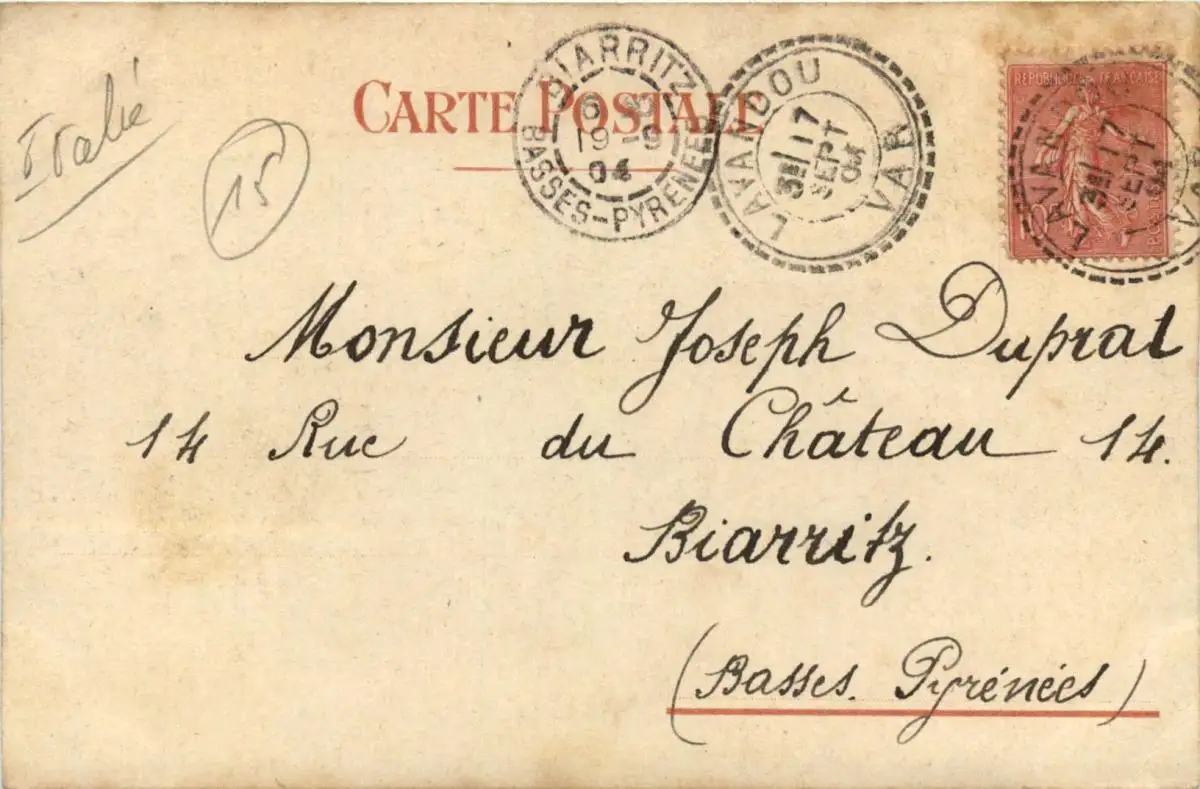 Italie
15
CARTE POSTALE
BIARRITZ
19-9
04
BASSES-PYRENEES
LAVANDOU
3E 17
SEPT
04
VAR
REPUBLIQUE FRANÇAISE
LAVANDOU
3E 17
SEPT
04
VAR
Monsieur Joseph Duprat
14 Rue du Château 14.
Biarritz.
(Basses. Pyrénées)